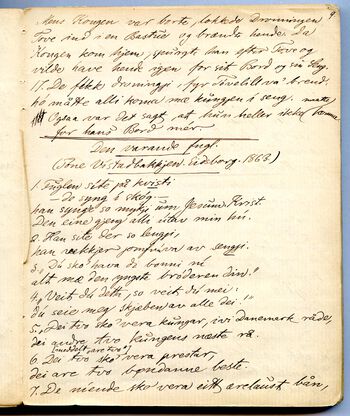 9
Mens Kongen var borte, lokkde Dronningen
Tove ind i en Bastue og brændte hende. Da
Kongen kom hjem, spurgte han efter Tove og
vilde have hende igjen for sit Bord og sin Seng.
17. De fekk dronningi, fyr Tovelill va' brend.
ho måtte alli koma mæ kungen i seng.
Ogsaa var det sagt, at hun heller ikke komme
for hans Bord mer.
Den varande fugl.
(Ane Vistadbakkjen. Eidsborg. 1863.)
1. Fuglen site på kvisti
– do syng i skóg –
han synge so mykji um Jesum Krist.
Den eine gjeng alli utav min hu.
2. Han site der so lengji,
han vækkjer jomfruva av sengji.
3. "Du sko' hava de bonni ni
alt mæ den yngste bróderen din."
4. "Veit du detti, so veit du mei:
du seie meg skjeben av alle dei!"
5. "Dei tvo sko' vera kungar, ivi Danemark råde,
dei andre tvo kungens næste rå.
6. Dei tvo sko' vera prestar,
dei are tvo bondanne beste.
7. De niende sko' vera eitt ærelaust bån,